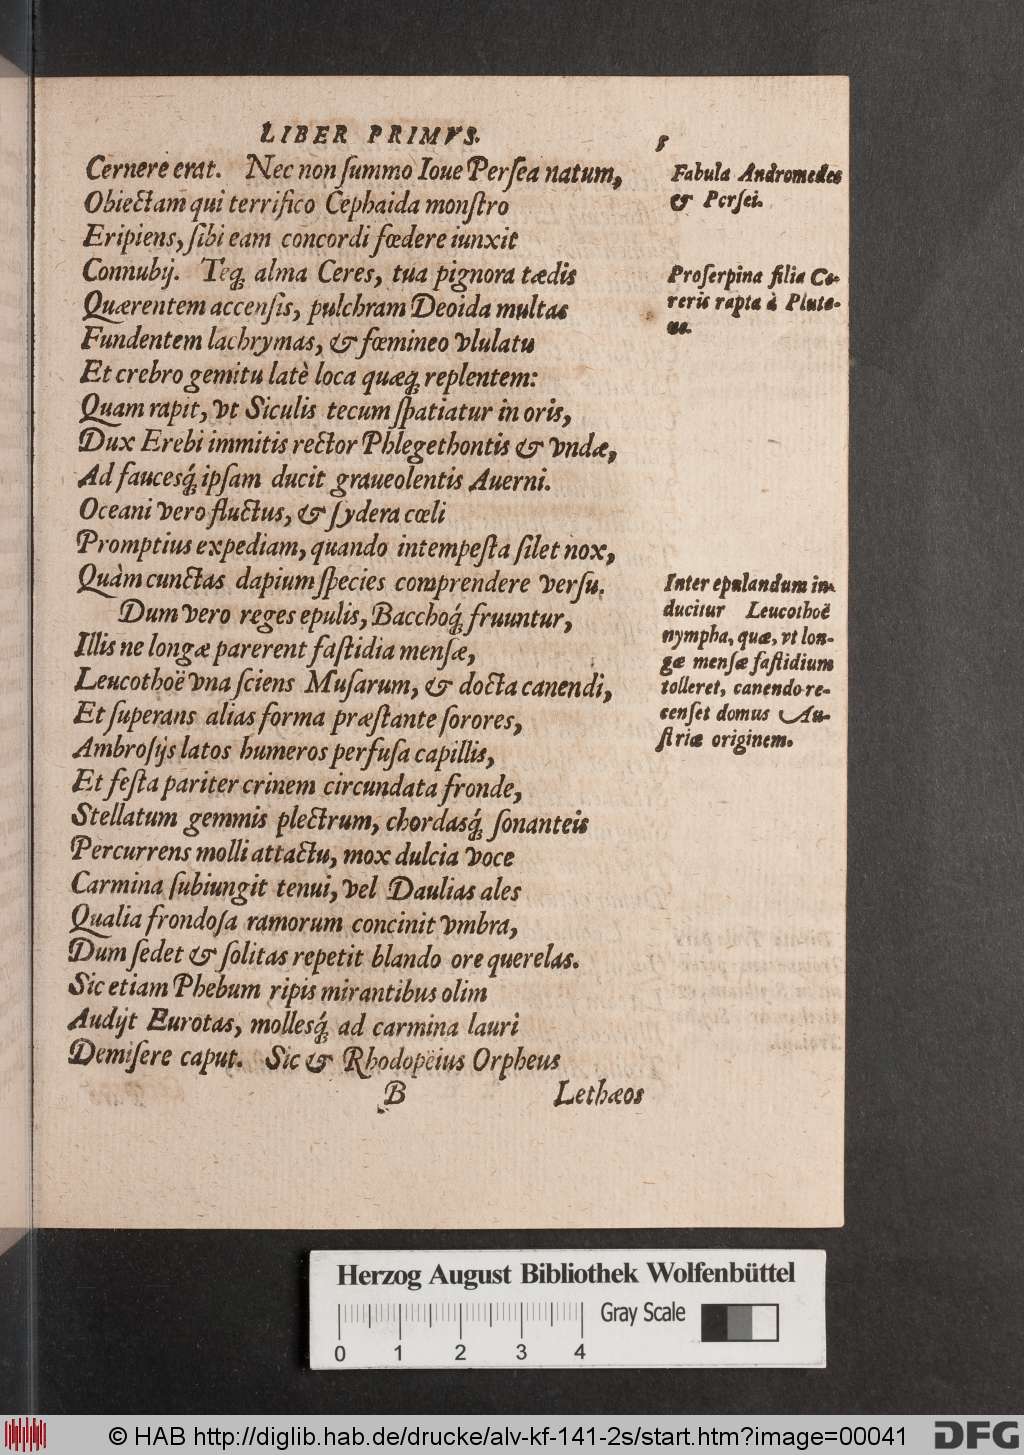 LIBER PRIMVS.
Cernere erat. Nec non ſummo Ioue Perſea natum,
Obiectam qui terrifico Cephaida monſtro
Eripiens, ſibi eam concordi fœdere iunxit
Connubij. Teq́ alma Ceres, tua pignora tædis
Quærentem accenſis, pulchram Deoida multas
Fundentem lachrymas, & fœmineo vlulatu
Et crebro gemitu latè loca quæq́ replentem:
Quam rapit, vt Siculis tecum ſpatiatur in oris,
Dux Erebi immitis rector Phlegethontis & vndæ,
Ad faucesq́ ipſam ducit graueolentis Auerni.
Oceani vero fluctus, & ſydera cœli
Promptius expediam, quando intempeſta ſilet nox,
Quàm cunctas dapium ſpecies comprendere verſu.
Dum vero reges epulis, Bacchoq́ fruuntur,
Illis ne longæ parerent faſtidia menſæ,
Leucothoë vna ſciens Muſarum, & docta canendi,
Et ſuperans alias forma præſtante ſorores,
Ambroſijs latos humeros perfuſa capillis,
Et feſta pariter crinem circundata fronde,
Stellatum gemmis plectrum, chordasq́ ſonanteis
Percurrens molli attactu, mox dulcia voce
Carmina ſubiungit tenui, vel Daulias ales
Qualia frondoſa ramorum concinit vmbra,
Dum ſedet & ſolitas repetit blando ore querelas.
Sic etiam Phebum ripis mirantibus olim
Audijt Eurotas, mollesq́ ad carmina lauri
Demiſere caput. Sic & Rhodopëius Orpheus
B
Lethæos
Fabula Andromedes
& Perſei.
Proſerpina filia Ce-
reris rapta à Pluto-
ne.
Inter epulandum in-
ducitur Leucothoë
nympha, quæ, vt lon-
gæ menſæ faſtidium
tolleret, canendo re-
cenſet domus Au-
ſtriæ originem.
Herzog August Bibliothek Wolfenbüttel
0 1 2 3 4
Gray Scale
© HAB http://diglib.hab.de/drucke/alv-kf-141-2s/start.htm?image=00041
DFG